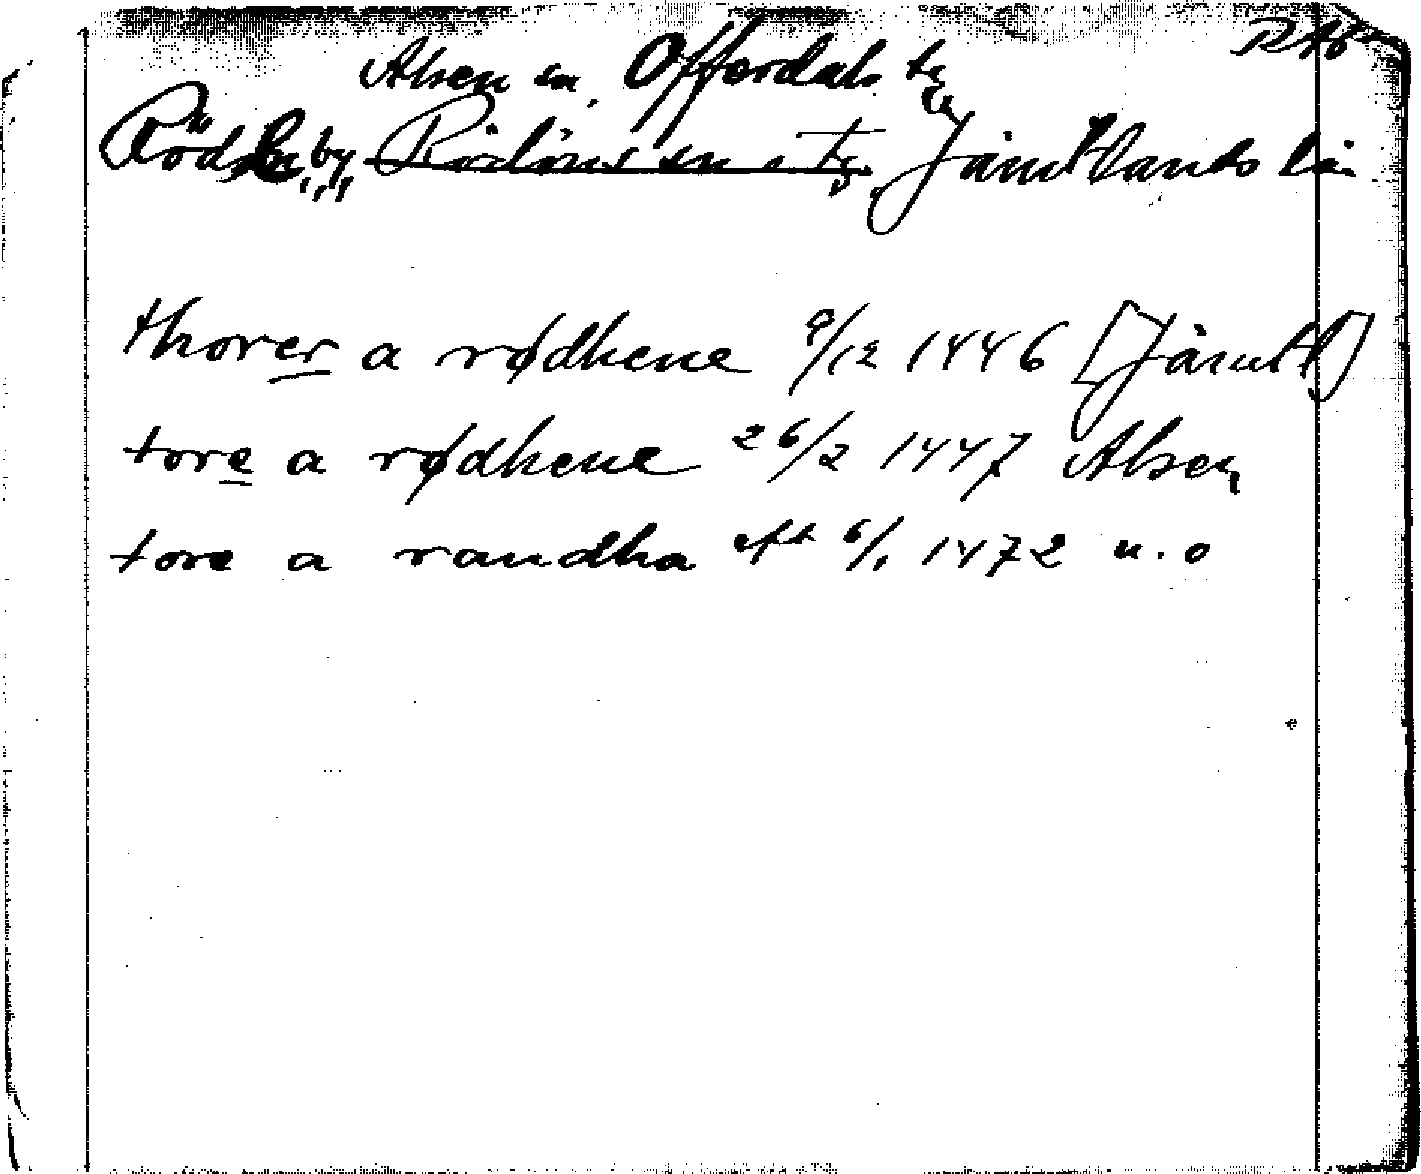 RAÖ
Alsen sn, Offerdals tg
Rödde, by, Rödöns sn o tg, Jämtlands län
thorer a rødhene 9/12 1446 [Jämtl]
tore a rødhene 26/2 1447 Alsen
tore a raudha eft 6/1 1472 n.o